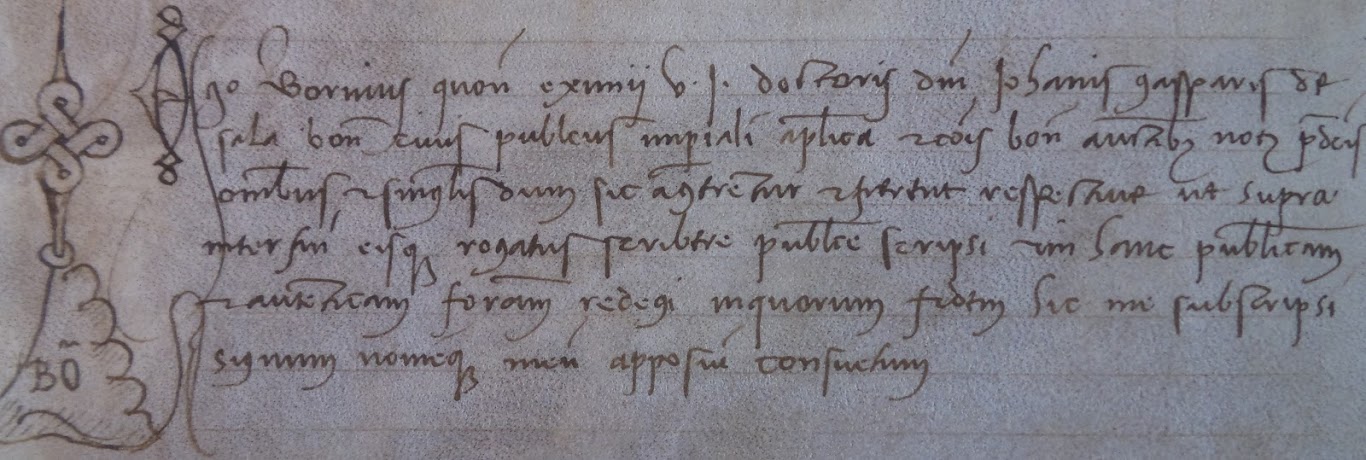 Ego Bornius quon̄ eximij v. J. doctoris dn̄i Johan̄is gasparis de
sala bon̄ civis publcus imperiali aplica & cois bon̄ auctatibꝫ notꝫ p̄dcis
omībus, & singlis dum sic agerentur & fierent respective ut supra
interfui eisqꝫ rogatus scribere publce scripsi & in hanc publicam
& autenticam foram redegi inquorum fidem hic me subscripsi
signum nomeqꝫ meū apposui consuetum
BŌ